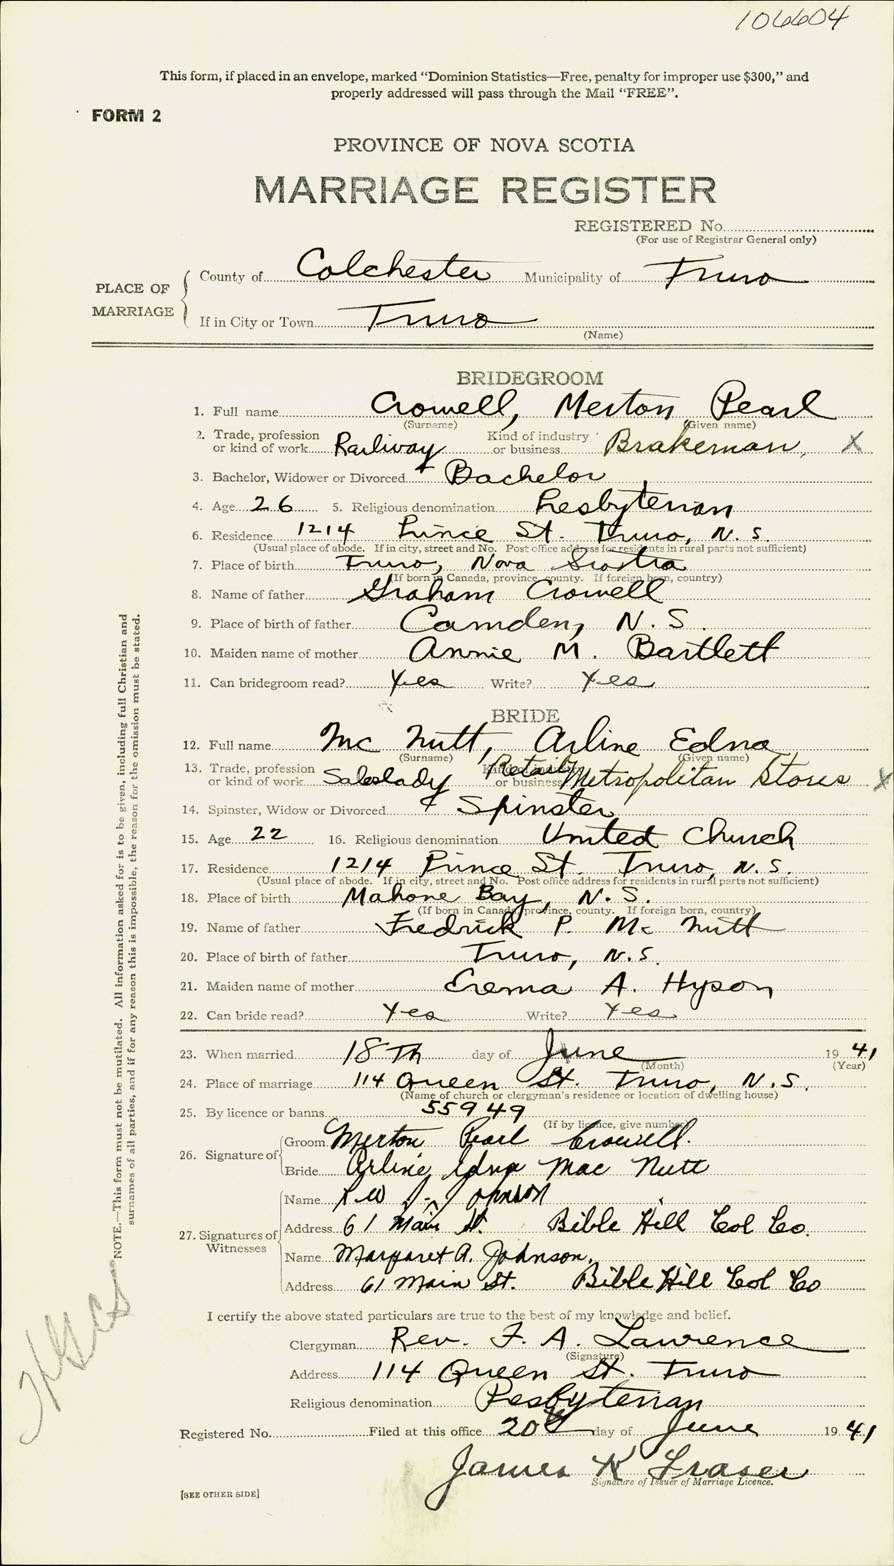 106604
This form, if placed in an envelope, marked "Dominion Statistics—Free, penalty for improper use $300," and
properly addressed will pass through the Mail "FREE".
FORM 2
PROVINCE OF NOVA SCOTIA
MARRIAGE REGISTER
REGISTERED No.
(For use of Registrar General only)
PLACE OF MARRIAGE
County of Colchester Municipality of Truro
If in City or Town Truro
(Name)
BRIDEGROOM
1. Full name Crowell, Merton Pearl
(Surname) (Given name)
2. Trade, profession or kind of work Railway Kind of industry or business Brakeman, X
3. Bachelor, Widower or Divorced Bachelor
4. Age 26 5. Religious denomination Presbyterian
6. Residence 1214 Prince St. Truro, N.S.
(Usual place of abode. If in city, street and No. Post office address for residents in rural parts not sufficient)
7. Place of birth Truro, Nova Scotia
(If born in Canada, province, county. If foreign born, country)
8. Name of father Graham Crowell
9. Place of birth of father Camden, N.S.
10. Maiden name of mother Annie M. Bartlett
11. Can bridegroom read? Yes Write? Yes
BRIDE
12. Full name Mc Nutt, Arline Edna
(Surname) (Given name)
13. Trade, profession or kind of work Saleslady Kind of industry or business Retail Metropolitan Stores X
14. Spinster, Widow or Divorced Spinster
15. Age 22 16. Religious denomination United Church
17. Residence 1214 Prince St. Truro, N.S.
(Usual place of abode. If in city, street and No. Post office address for residents in rural parts not sufficient)
18. Place of birth Mahone Bay, N.S.
(If born in Canada, province, county. If foreign born, country)
19. Name of father Fredrick P. Mc Nutt
20. Place of birth of father Truro, N.S.
21. Maiden name of mother Erema A. Hyson
22. Can bride read? Yes Write? Yes
23. When married 18Th day of June 1941
(Month) (Year)
24. Place of marriage 114 Queen St. Truro, N.S.
(Name of church or clergyman's residence or location of dwelling house)
25. By licence or banns 55949
(If by licence, give number)
26. Signature of
Groom Merton Pearl Crowell.
Bride Arline Edna Mac Nutt
27. Signatures of Witnesses
Name Johnson
Address 61 Main St. Bible Hill Col Co.
Name Margaret A. Johnson,
Address 61 Main St. Bible Hill Col Co
I certify the above stated particulars are true to the best of my knowledge and belief.
Clergyman Rev. F. A. Lawrence
(Signature)
Address 114 Queen St. Truro
Religious denomination Presbyterian
Registered No. Filed at this office 20 day of June 1941
James K Fraser
Signature of Issuer of Marriage Licence.
[SEE OTHER SIDE]
NOTE.—This form must not be mutilated. All information asked for is to be given, including full Christian and
surnames of all parties, and if for any reason this is impossible, the reason for the omission must be stated.